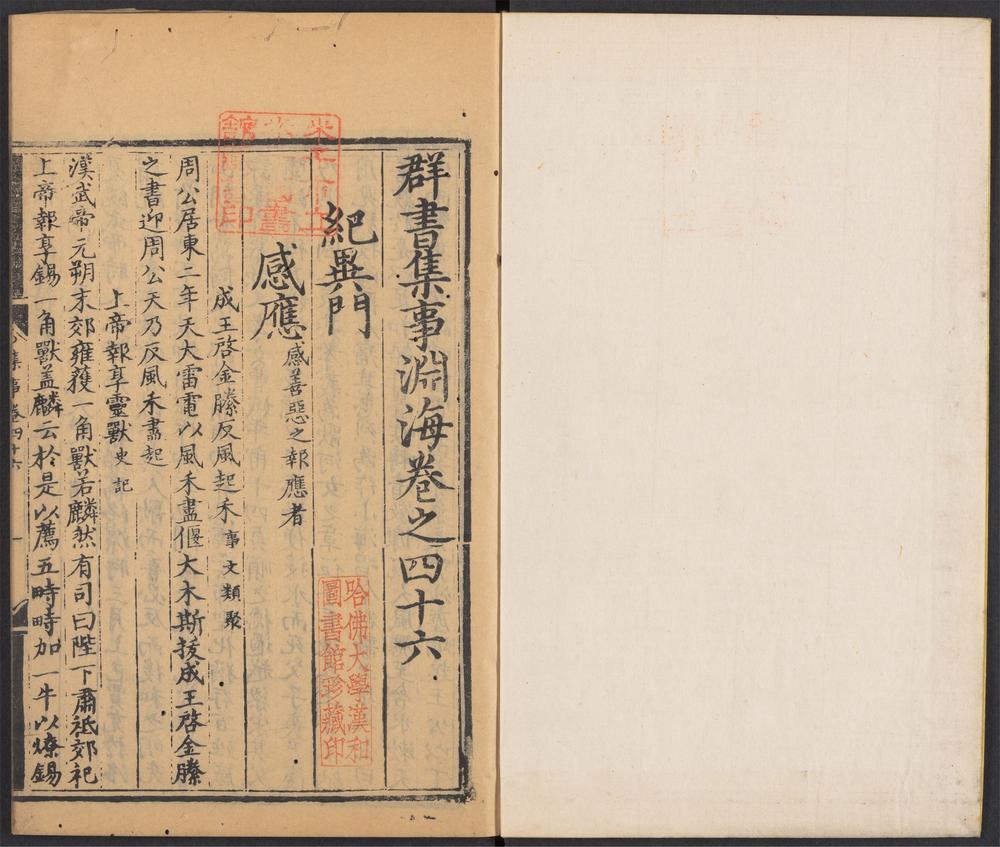 群書集事淵海卷之四十六
紀異門
感應感善惡之報應者
成王啓金縢反風起禾事文類聚
周公居東二年天大雷電以風禾盡偃大木斯拔成王啓金縢
之書迎周公天乃反風禾盡起
上帝報享靈獸史記
漢武帝元朔末郊雍獲一角獸若麟然有司曰陛下肅祗郊祀
上帝報享錫一角獸盖麟云於是以薦五畤畤加一牛以燎錫
集事卷四十六
哈佛大學漢和
圖書館珍藏印